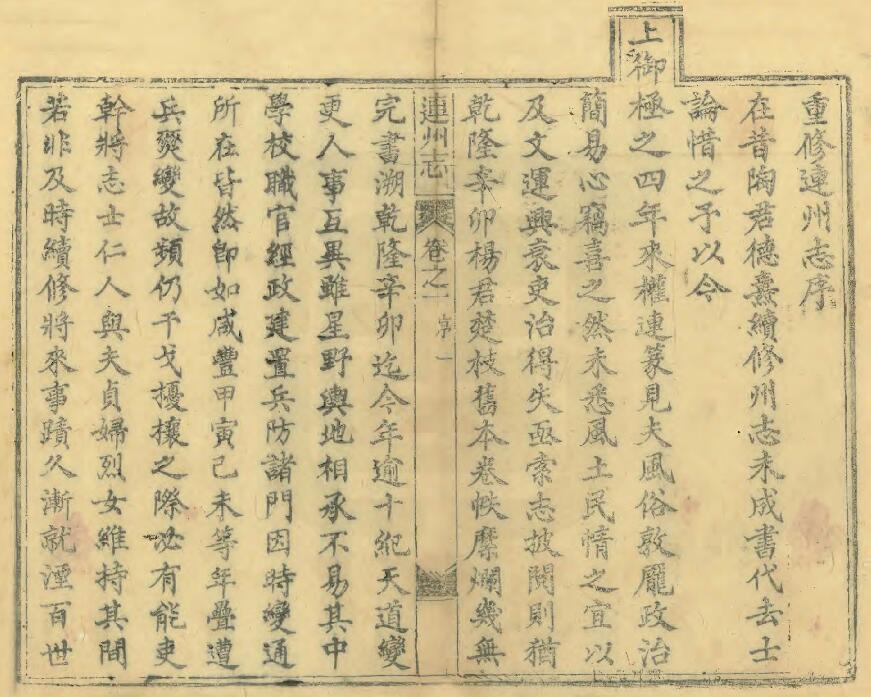 重修連州志序
在昔陶君德燾續修州志未成書代去士
論惜之予以今
上御極之四年來權連篆見夫風俗敦龐政治
簡易心竊喜之然未悉風土民情之宜以
及文運興衰吏治得失亟索志披閱則猶
乾隆辛卯楊君楚枝舊本卷帙靡爛幾無
連州志 卷之一 序 一
完書溯乾隆辛卯迄今年逾十紀天道變
更人事互異雖星野輿地相承不易其中
學校職官經政建置兵防諸門因時變通
所在皆然卽如咸豐甲寅己未等年疊遭
兵燹變故頻仍干戈擾攘之際必有能吏
幹將志士仁人與夫貞婦烈女維持其間
若非及時續修將來事蹟久漸就湮百世